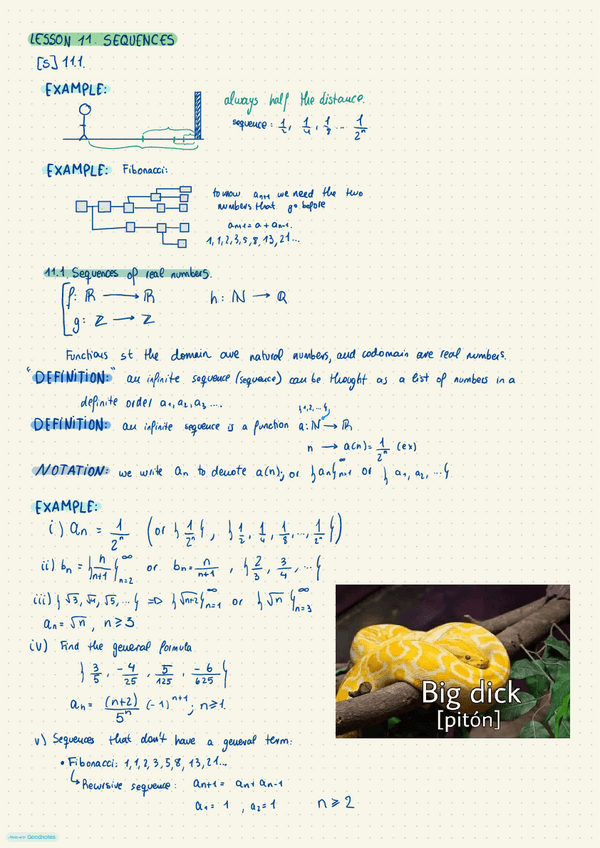 LESSON 11. SEQUENCES
[S] 11.1.
EXAMPLE:
always half the distance.
sequence: 1/2, 1/4, 1/8 ... 1/2^n
EXAMPLE: Fibonacci:
to know a_{n+1} we need the two
numbers that go before
a_{n+1} = a + a_{n-1}.
1, 1, 2, 3, 5, 8, 13, 21...
11.1. Sequences of real numbers.
f: ℝ → ℝ h: ℕ → ℚ
g: ℤ → ℤ
Functions st the domain are natural numbers, and codomain are real numbers.
"DEFINITION:" an infinite sequence (sequence) can be thought as a list of numbers in a
definite order a₁, a₂, a₃ ....
{1, 2, ...}
DEFINITION: an infinite sequence is a function a: ℕ → ℝ
n → a(n) = 1/2^n (ex)
NOTATION: we write a_n to denote a(n); or {a_n}_{n=1}^∞ or {a₁, a₂, ...}
EXAMPLE:
i) a_n = 1/2^n (or {1/2^n}, {1/2, 1/4, 1/8, ..., 1/2^n})
ii) b_n = {n/n+1}_{n=2}^∞ or b_n = n/n+1, {2/3, 3/4, ...}
iii) {√3, √4, √5, ...} => {√n+2}_{n=1}^∞ or {√n}_{n=3}^∞
a_n = √n, n ≥ 3
iv) Find the general formula
{3/5, -4/25, 5/125, -6/625}
a_n = (n+2)/5^n (-1)^{n+1}; n ≥ 1.
v) Sequences that don't have a general term:
• Fibonacci: 1, 1, 2, 3, 5, 8, 13, 21...
↳ Recursive sequence: a_{n+1} = a_n + a_{n-1}
a₁ = 1, a₂ = 1 n ≥ 2
Big dick
[pitón]
Made with Goodnotes